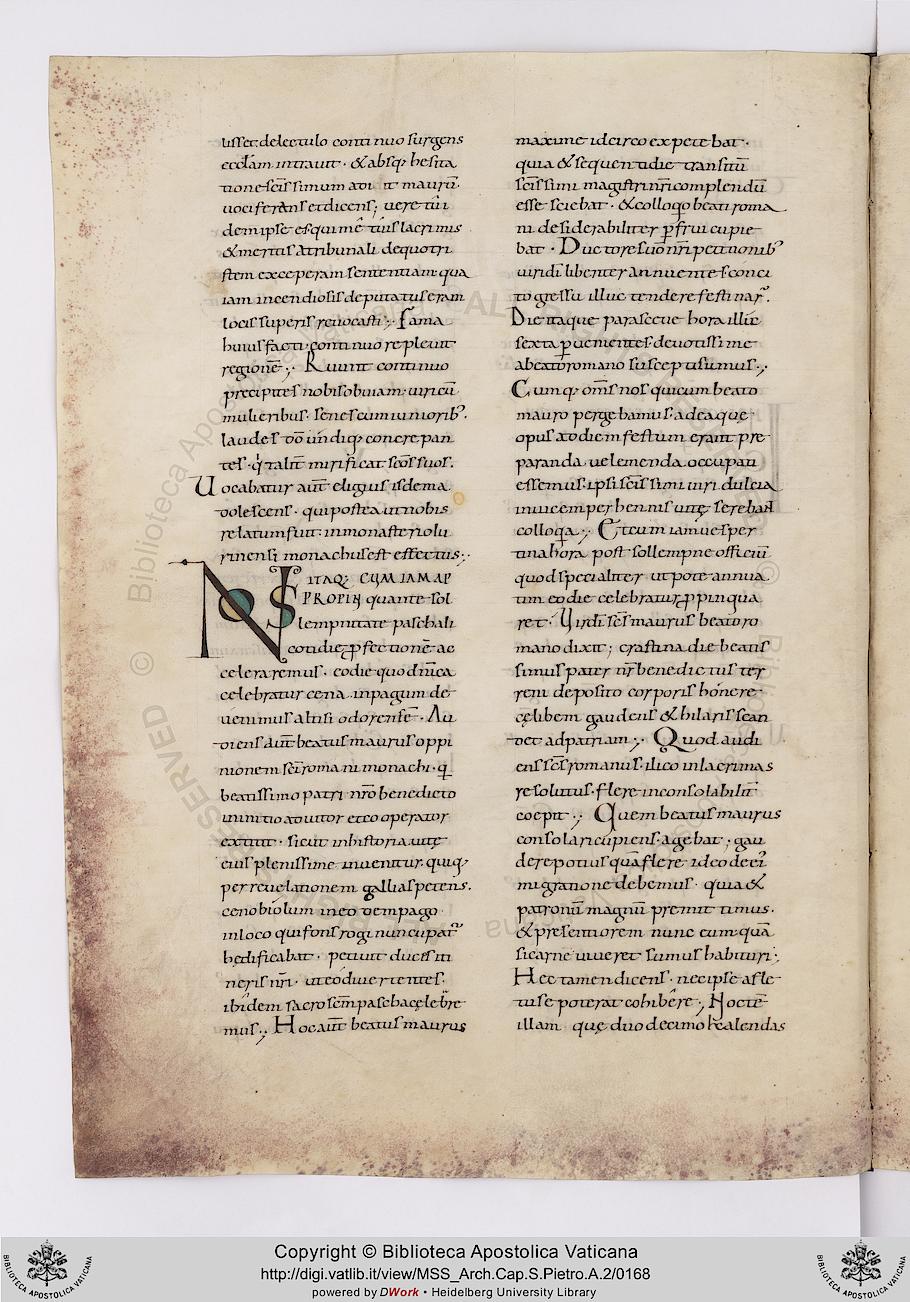 lisset delectulo continuo surgens
eccłam intrauit · &absq; hesita
tione scīssimum adi it maurū·
uociferans etdicens; uere tu i
dem ipse es qui me tuis lacrimis
&meritis atribunali dequo tri
stem exceperam sententiam qua
iam incendiosis deputatus eram
locis superis reuocasti ·,· Fama
huius facti continuo repleuit
regionē ·,· Ruunt continuo
precipites nobis obuiam uiri cū
mulieribus· senes cum iunioribꝰ·
laudes dō undiq; concrepan
tes· qī talit mirificat scōs suos·
Uocabatur aūt eligius isdem a
dolescens· qui postea ut nobis
relatum fuit· inmonasterio lu
rinensi monachus est effectus·,·
NOS ITAQ; CVM IAM AP
PROPIN quante sol
lempnitate paschali
cotidie ꝓfectionē ac
celeraremus· eo die quo dnīca
celebratur cena inpagum de
uenimus altisiodorensē· Au
diens aūt beatus maurus oppi
nionem scī romani monachi· qī
beatissimo patri nrō benedicto
in initio adiutor et cooperator
extitit· sicut inhistoria uitę
eius plenissime inuenitur· quiq;
per reuelationem gallias petens·
cenobiolum in eodem pago
inloco qui fons rogi nuncupatꝰ
hędificabat· petiuit duces iti
neris nrī· ut eo diuertentes·
ibidem sacro scm̄ pascha cęlebre
mus·,· Hoc aūt beatus maurus
maxime idcirco expetebat·
quia & sequenti die transitū
scīssimi magistri nrī complendū
esse sciebat· & colloqio beati roma
ni desiderabiliter ꝑfrui cupie
bat· Ductore suo nrī petitionibꝰ
uiridi libenter annuente· conci
to gressu illuc tendere festinarꝰ·
Die itaque parasceue hora illic
sexta ꝑuenientes· deuotissime
abeato romano suscepti sumus·,·
Cumq; oms̄ nos qui cum beato
mauro pergebamus· ad ea quę
opus ad diem festum erant pre
paranda uehementer occupati
essemus· ipsi scīssimi uiri dulcia
inuicem perhennis uitę serebant
colloqia·,· Et cum iam uesper
tina hora post sollempne officiū
quod specialiter utpote annua
tim eo die celebratur ꝓpinqua
ret· Uir dī scs̄ maurus beato ro
mano dixit; crastina die beatis
simus pater nr̄ benedictus ter
reni deposito corporis honere
cęlibem gaudens & hilaris scan
det ad patriam·,· Quod audi
ens scs̄ romanus· ilico inlacrimas
resolutus· flere inconsolabilit
coepit·,· Quem beatus maurus
consolari cupiens· agebat; gau
dere potius quā flere· id eo de ei
migratione debemus· quia &
patronū magnū premittimus·
& presentiorem nunc eum quā
si carne uiueret sumus habituri·
Hec tamen dicens· nec ipse a fle
tu se poterat cohibere·, Nocte
illam quę duodecimo kalendas
Copyright © Biblioteca Apostolica Vaticana
http://digi.vatlib.it/view/MSS_Arch.Cap.S.Pietro.A.2/0168
powered by DWork • Heidelberg University Library